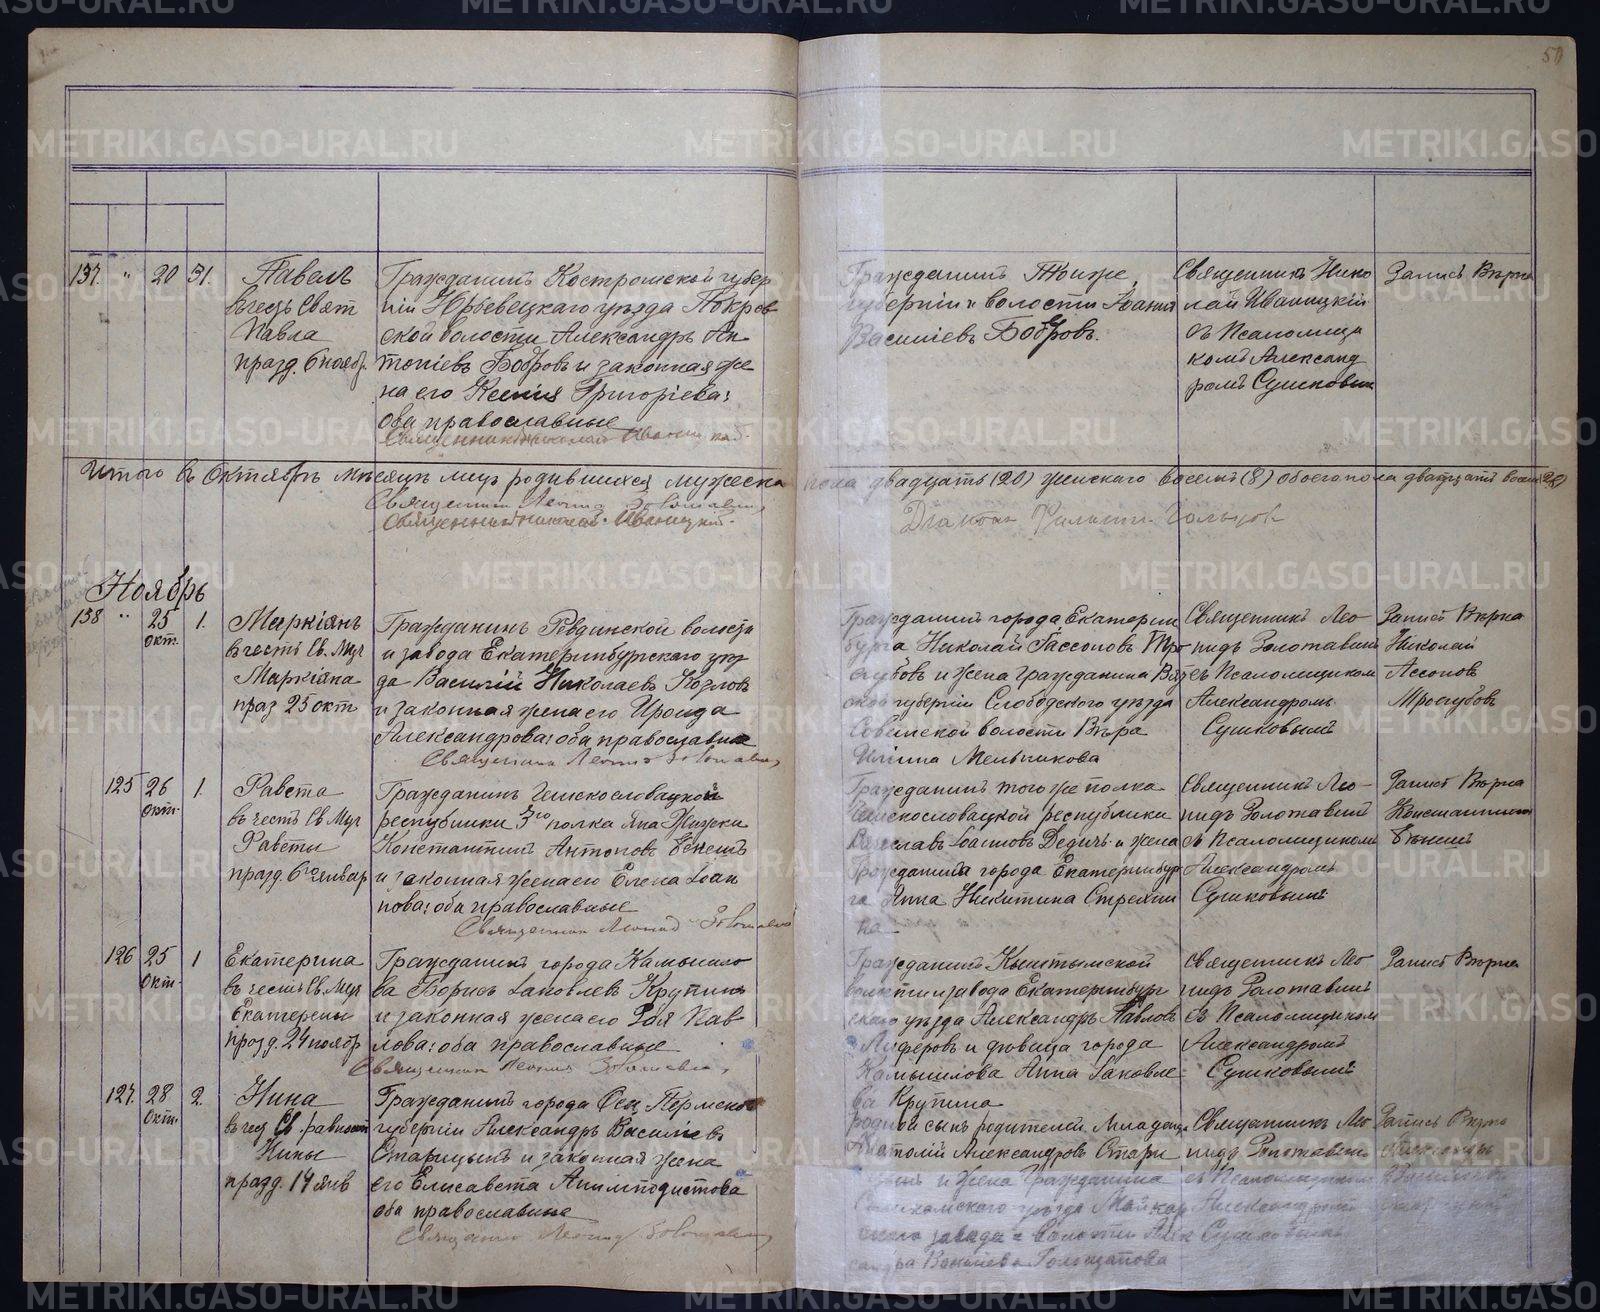 50
137. " 20 31. Павелъ
въ честь Свят
Павла
празд. 6 ноябр.
Гражданинъ Костромской губер
ніи Юрьевецкаго уѣзда Покров
ской волости Александръ Ан
тоніевъ Бобровъ и законная же
на его Ксенія Григоріева:
оба православные
Священникъ Николай Иваницкій.
Гражданинъ Тоиже
губерніи и волости Іоаннъ
Василіевъ Бобровъ.
Священникъ Нико
лай Иваницкій
съ Псаломщи
комъ Александ
ромъ Сушковым
Запись Вѣрна
Итого въ Октябрѣ мѣсяцѣ родившихся мужеска пола двадцать (20) женскаго восемь (8) обоего пола двадцать восемь (28)
Священникъ Леонид Золотавин
Священникъ Николай Иваницкій.
Діакон
Ноябрь
138 " 25 окт. 1. Маркіянъ
въ честь Св. Муч
Маркіана
праз 25 окт
Гражданинъ Ревдинской волости
и завода Екатеринбургскаго уѣз
да Василій Николаевъ Козловъ
и законная жена его Ироида
Александрова: оба православные
Священник Леонид Золотавин
Гражданинъ города Екатерин
бурга Николай
и жена гражданина Вят
ской губерніи Слободского уѣзда
волости Вѣра
Мельчикова
Священникъ Лео
нидъ Золотавинъ
съ Псаломщиком
Александромъ
Сушковымъ
Запись Вѣрна
Николай
125 26 окт. 1. Равста
въ честь Св Муч
Равсты
празд. 6го январ
Гражданинъ Чешскословацкой
республики 3го полка Яна Жижки
Константинъ Антоновъ Бенешъ
и законная жена его Елена Іоан
нова: оба православные
Священник Леонид Золотавин
Гражданинъ того же полка
Чешскословацкой республики
Вячеславъ Іоанновъ Дедичъ и жена
Гражданина города Екатеринбур
га Анна Никитина Стрежни
на
Священникъ Лео
нидъ Золотавинъ
съ Псаломщикомъ
Александромъ
Сушковымъ
Запись Вѣрна
Константинъ
Бенешъ
126 25 окт. 1 Екатерина
въ честь Св. Муч
Екатерины
празд. 24 ноябр
Гражданинъ города Камышло
ва Борисъ Іаковлевъ Крупинъ
и законная жена его Зоя Пав
лова: оба православные
Священник Леонид Золотавин
Гражданинъ Кыштымской
волости и завода Екатеринбург
скаго уѣзда Александръ Павловъ
и дѣвица города
Камышлова Анна Іаковле
ва Крупина
Священникъ Лео
нидъ Золотавинъ
съ Псаломщиком
Александромъ
Сушковымъ
Запись Вѣрна
127. 28 окт. 2. Нина
въ чес Св. равноап
Нины
празд. 14 янв
Гражданинъ города Осы Пермской
губерніи Александръ Василіевъ
Старицынъ и законная жена
его Елисавета Анимподистова
оба православные
Священник Леонид Золотавин
Родной сынъ родителей младенца
Анатолій Александровъ Стари
цынъ и жена Гражданина
Соликамскаго уѣзда Майкор
скаго завода и волости Алек
сандра Василіева
Священникъ Лео
нидъ Золотавинъ
съ Псаломщиком
Александромъ
Сушковымъ
Запись Вѣрна
Александръ
METRIKI.GASO-URAL.RU